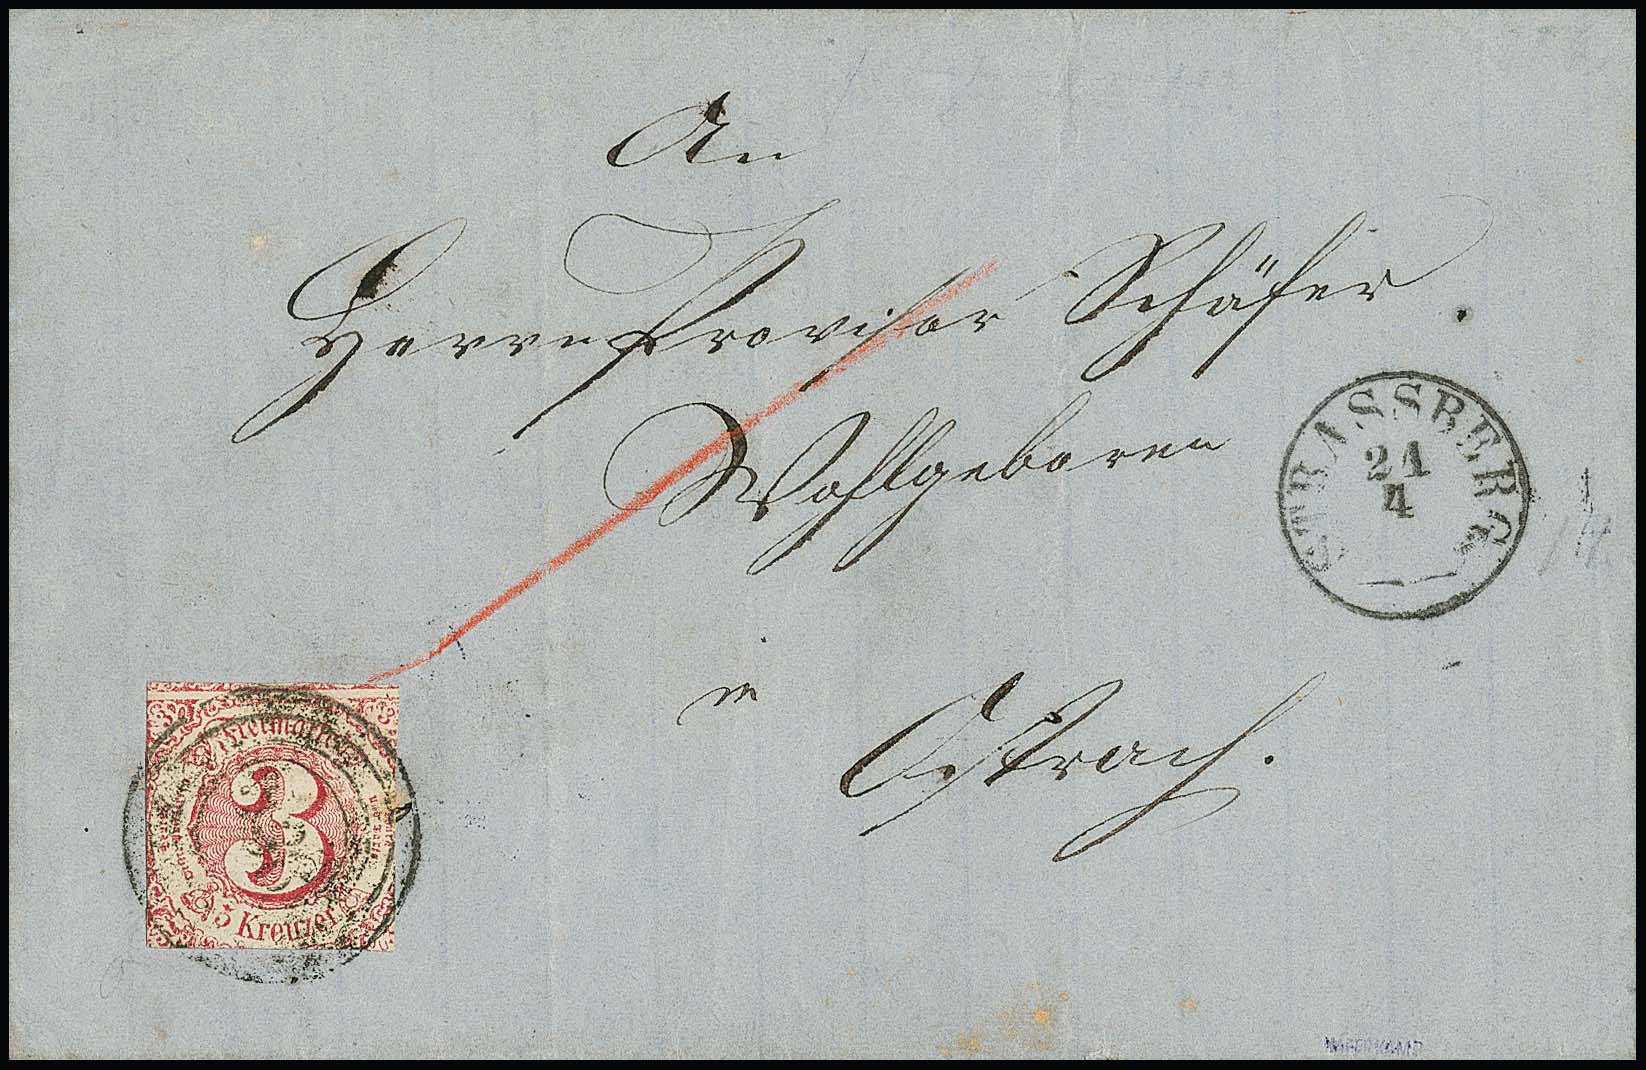 An
Herrn Provisor Schäfer
Wohlgeboren
in
Ostrach.
STRASSBERG
21
4
Freimarke
3
3 Kreuzer
HAFERKAMP